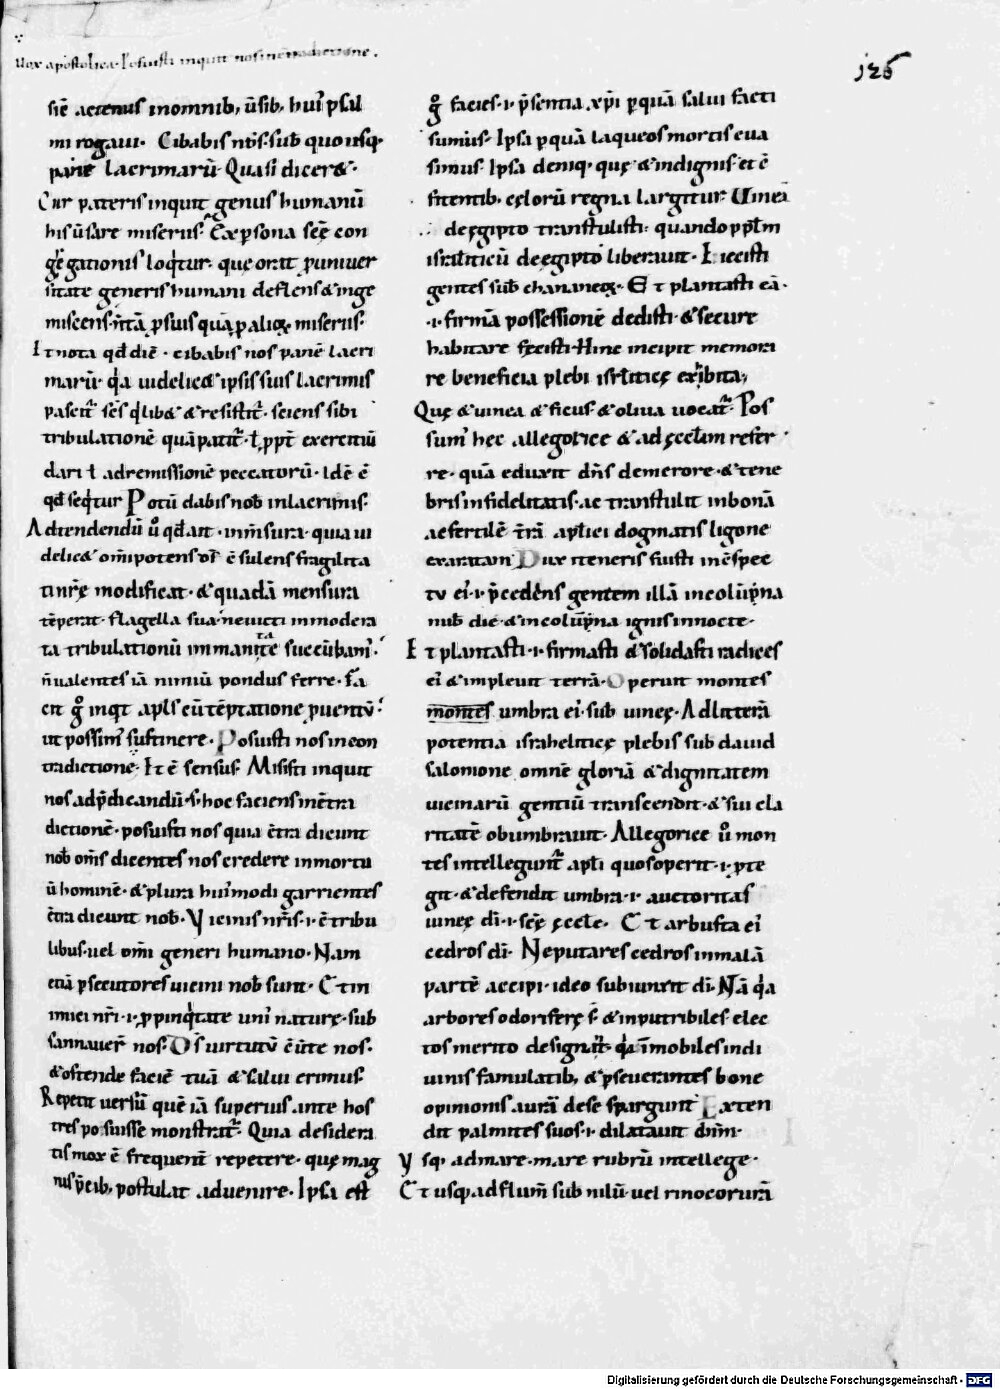 Uox apostolica. Posuisti inquit nos in c̄tradictione.
126
sic̄ actenus inomnib, u̅sib, hui᾽ psal
mi rogaui. Cibabis nos̅. sub̅ quousq.
panē lacrimarū. Quasi dicer&.
Cur pateris inquit genus humanū
his u̅sare miseriis. Ex p̱sona sc̄ę con
gr̅egationis loq̇tur. quę orat p̱ uniuer
sitate generis humani deflens & inge
miscens. n̄ tā p̱ suis quā p̱ alioꝝ miseriis.
Et nota qd̄ dic̄. cibabis nos panē lacri
marū. q̇a uidelic& ipsis suis lacrimis
pascit̄. sc̄s q̇lib& & resistit̄. sciens sibi
tribulationē quā patit̄. ł p̱pt̄ exercitiū
dari ł adremissionē peccatorū. Idē ē
qd̄ seq̇tur Potū dabis nob̄ inlacrimis.
Adtendendū ů qd̄ ait. inm̄sura. quia ui
delic& om̄ipotens ds̄ c̄sulens fragilita
ti nr̄ę modificat. & quadā mensura
tēperat. flagella sua. ne uicti inmodera
ta tribulationū immanitate succūbam᾽.
n̄ualentes iā nimiū pondus ferre. fa
cit g̊ inqt apl̄s cū tēptatione p̱uentū.
ut possim᾽ sustinere. Posuisti nos incon
tradictionē. Et ē sensus. Misisti inquit
nos adp̄dicandū. s. hoc faciens inc̄tra
dictionē. posuisti nos quia c̄tra dicunt
nob̄ om̄s dicentes nos credere inmortu
ū hominē. & plura hui᾽modi garrientes
c̄tra dicunt nob̄. Vicinis nr̄is. i. c̄tribu
libus. uel om̄i generi humano. Nam
etiā p̱secutores uicini nob̄ sunt. Et in
imici nr̄i. i. p̱pinq̇tate uni᾽ naturę. sub
sannauer̄ nos. Ds̄ uirtutū c̄u̅te nos.
& ostende faciē tuā & salui erimus.
Repetit uersū quē iā superius ante hos
tres posuisse monstrat̄. Quia desidera
tis mox ē frequent̄ repetere. quę mag
nis p̄cib, postulat aduenire. Ipsa est
g̊ facies. i. p̄sentia xp̄i p̱ quā salui facti
sumus. Ipsa p̱ quā laqueos mortis eua
simus. Ipsa deniq. quę & indignis. et ē
sitentib. cęlorū regna largitur. Uineā
deęgipto transtulisti. quando pp̄lm
isrl̄iticū deęgipto liberauit. Eiecisti
gentes sub̄ chananeoꝝ. Et plantasti eā.
.i. firmā possessionē dedisti. & secure
habitare fecisti. Hinc incipit memora
re beneficia plebi isrl̄iticę exhibita,
Quę & uinea & ficus & oliua uocat̄. Pos
sum᾽ hec allegorice & adęccl̄am refer
re. quā eduxit dn̄s demerore. & tene
bris infidelitatis. ac transtulit inbonā
ac fertilē t̄rā. apl̄ici dogmatis ligone
exaratam Dux itineris fuisti inc̄spec
tu ei᾽. i. p̄cedens gentem illā incolūp̱na
nub̄ dic̄. & incolūp̱na ignis innocte.
Et plantasti. i. firmasti & solidasti radices
ei᾽ & impleuit terrā. Operuit montes
montes umbra ei᾽. sub̄ uineę. Ad litterā
potentia israheliticę plebis sub dauid
salomone omnē gloriā & dignitatem
uicinarū gentiū transcendit. & sui cla
ritatē obumbrauit. Allegorice ů mon
tes intellegunt̄ apl̄i quos operit. i. p̱te
git. & defendit umbra. i. auctoritas
uineę dī. i. sc̄ę ęccl̄e. Et arbusta ei᾽
cedros dī. Ne putares cedros inmalā
partē accipi. ideo subiunxit dī. Nā q̇a
arbores odorifere s̄. & inputribiles elec
tos merito designat̄. q̇a īmobiles indi
uinis famulatib, & p̱seuerantes bone
opinionis aurā dese spargunt Exten
dit palmites suos. i. dilatauit dn̄m.
Vsq, admare. mare rubrū intellege.
Et usq, ad flum̄ sub nilū. uel rinocorurā
Digitalisierung gefördert durch die Deutsche Forschungsgemeinschaft - DFG